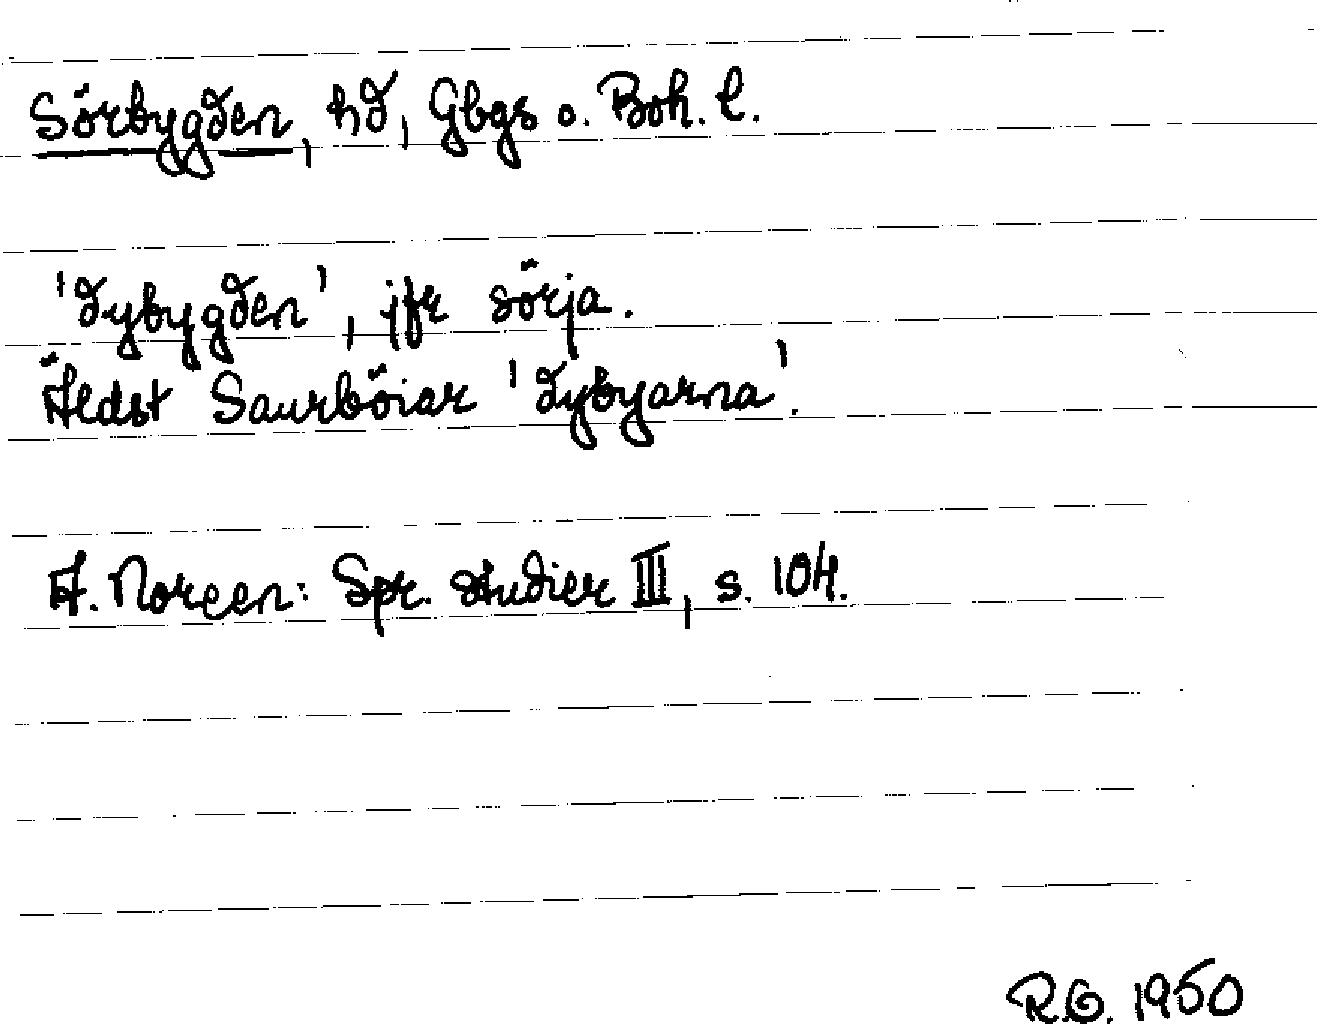 Sörbygden, hd, Gbgs o. Boh. l.
'dybygden', jfr sörja.
Äldst Saurböiar 'dybyarna'.
A. Noreen: Spr. studier III, s. 104.
R.G. 1950